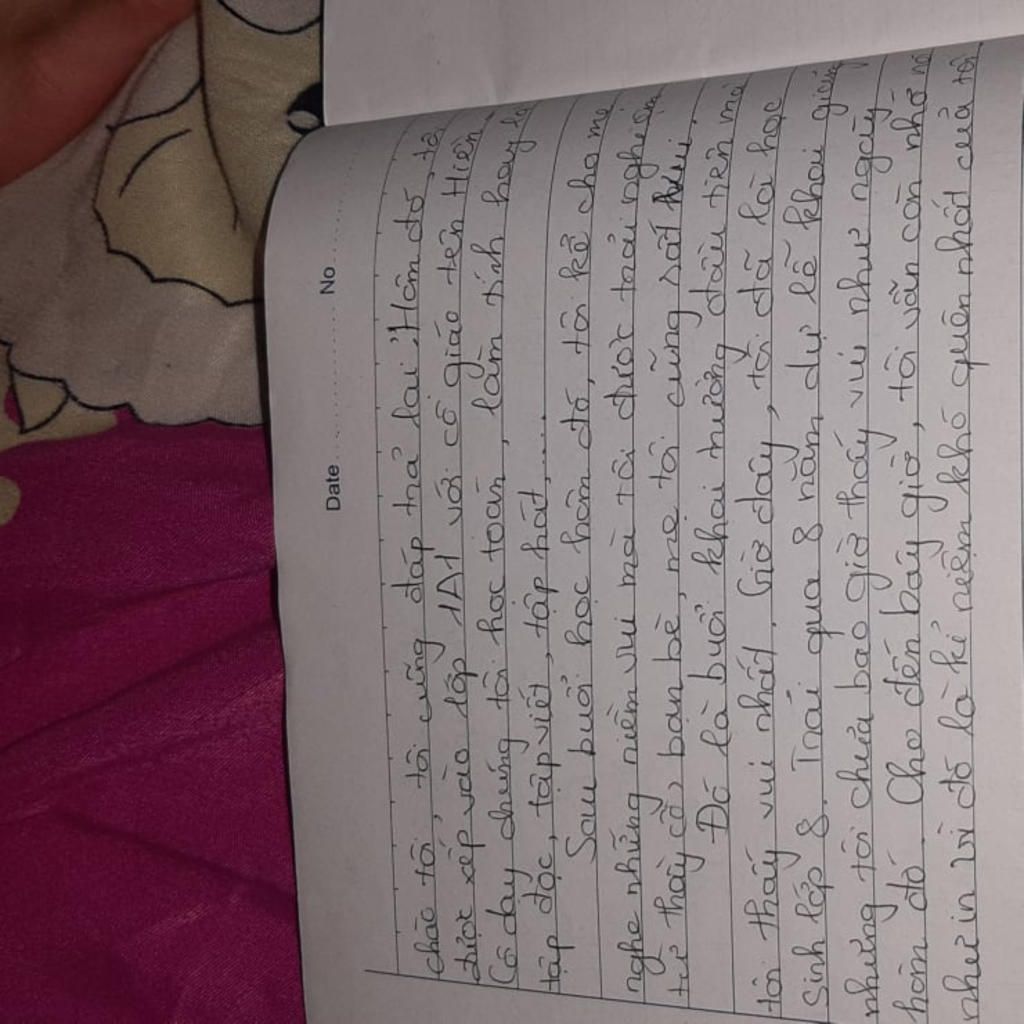 Date No
chào tôi, tôi cũng đáp trả lại. Hôm đó, tôi
được xếp vào lớp 1A1 với cô giáo tên Hiền.
Cô dạy chúng tôi học toán, làm tính hay là
tập đọc, tập viết, tập hát,.....
Sau buổi học hôm đó, tôi kể cho mẹ
nghe những niềm vui mà tôi được trải nghiệm
từ thầy cô, bạn bè, mẹ tôi cũng rất vui.
Đó là buổi khai trường đầu tiên mà
tôi thấy vui nhất. Giờ đây, tôi đã là học
sinh lớp 8. Trải qua 8 năm dự lễ khai giảng
nhưng tôi chưa bao giờ thấy vui như ngày
hôm đó. Cho đến bây giờ, tôi vẫn còn nhớ nó
như in vì đó là kỉ niệm khó quên nhất của tôi